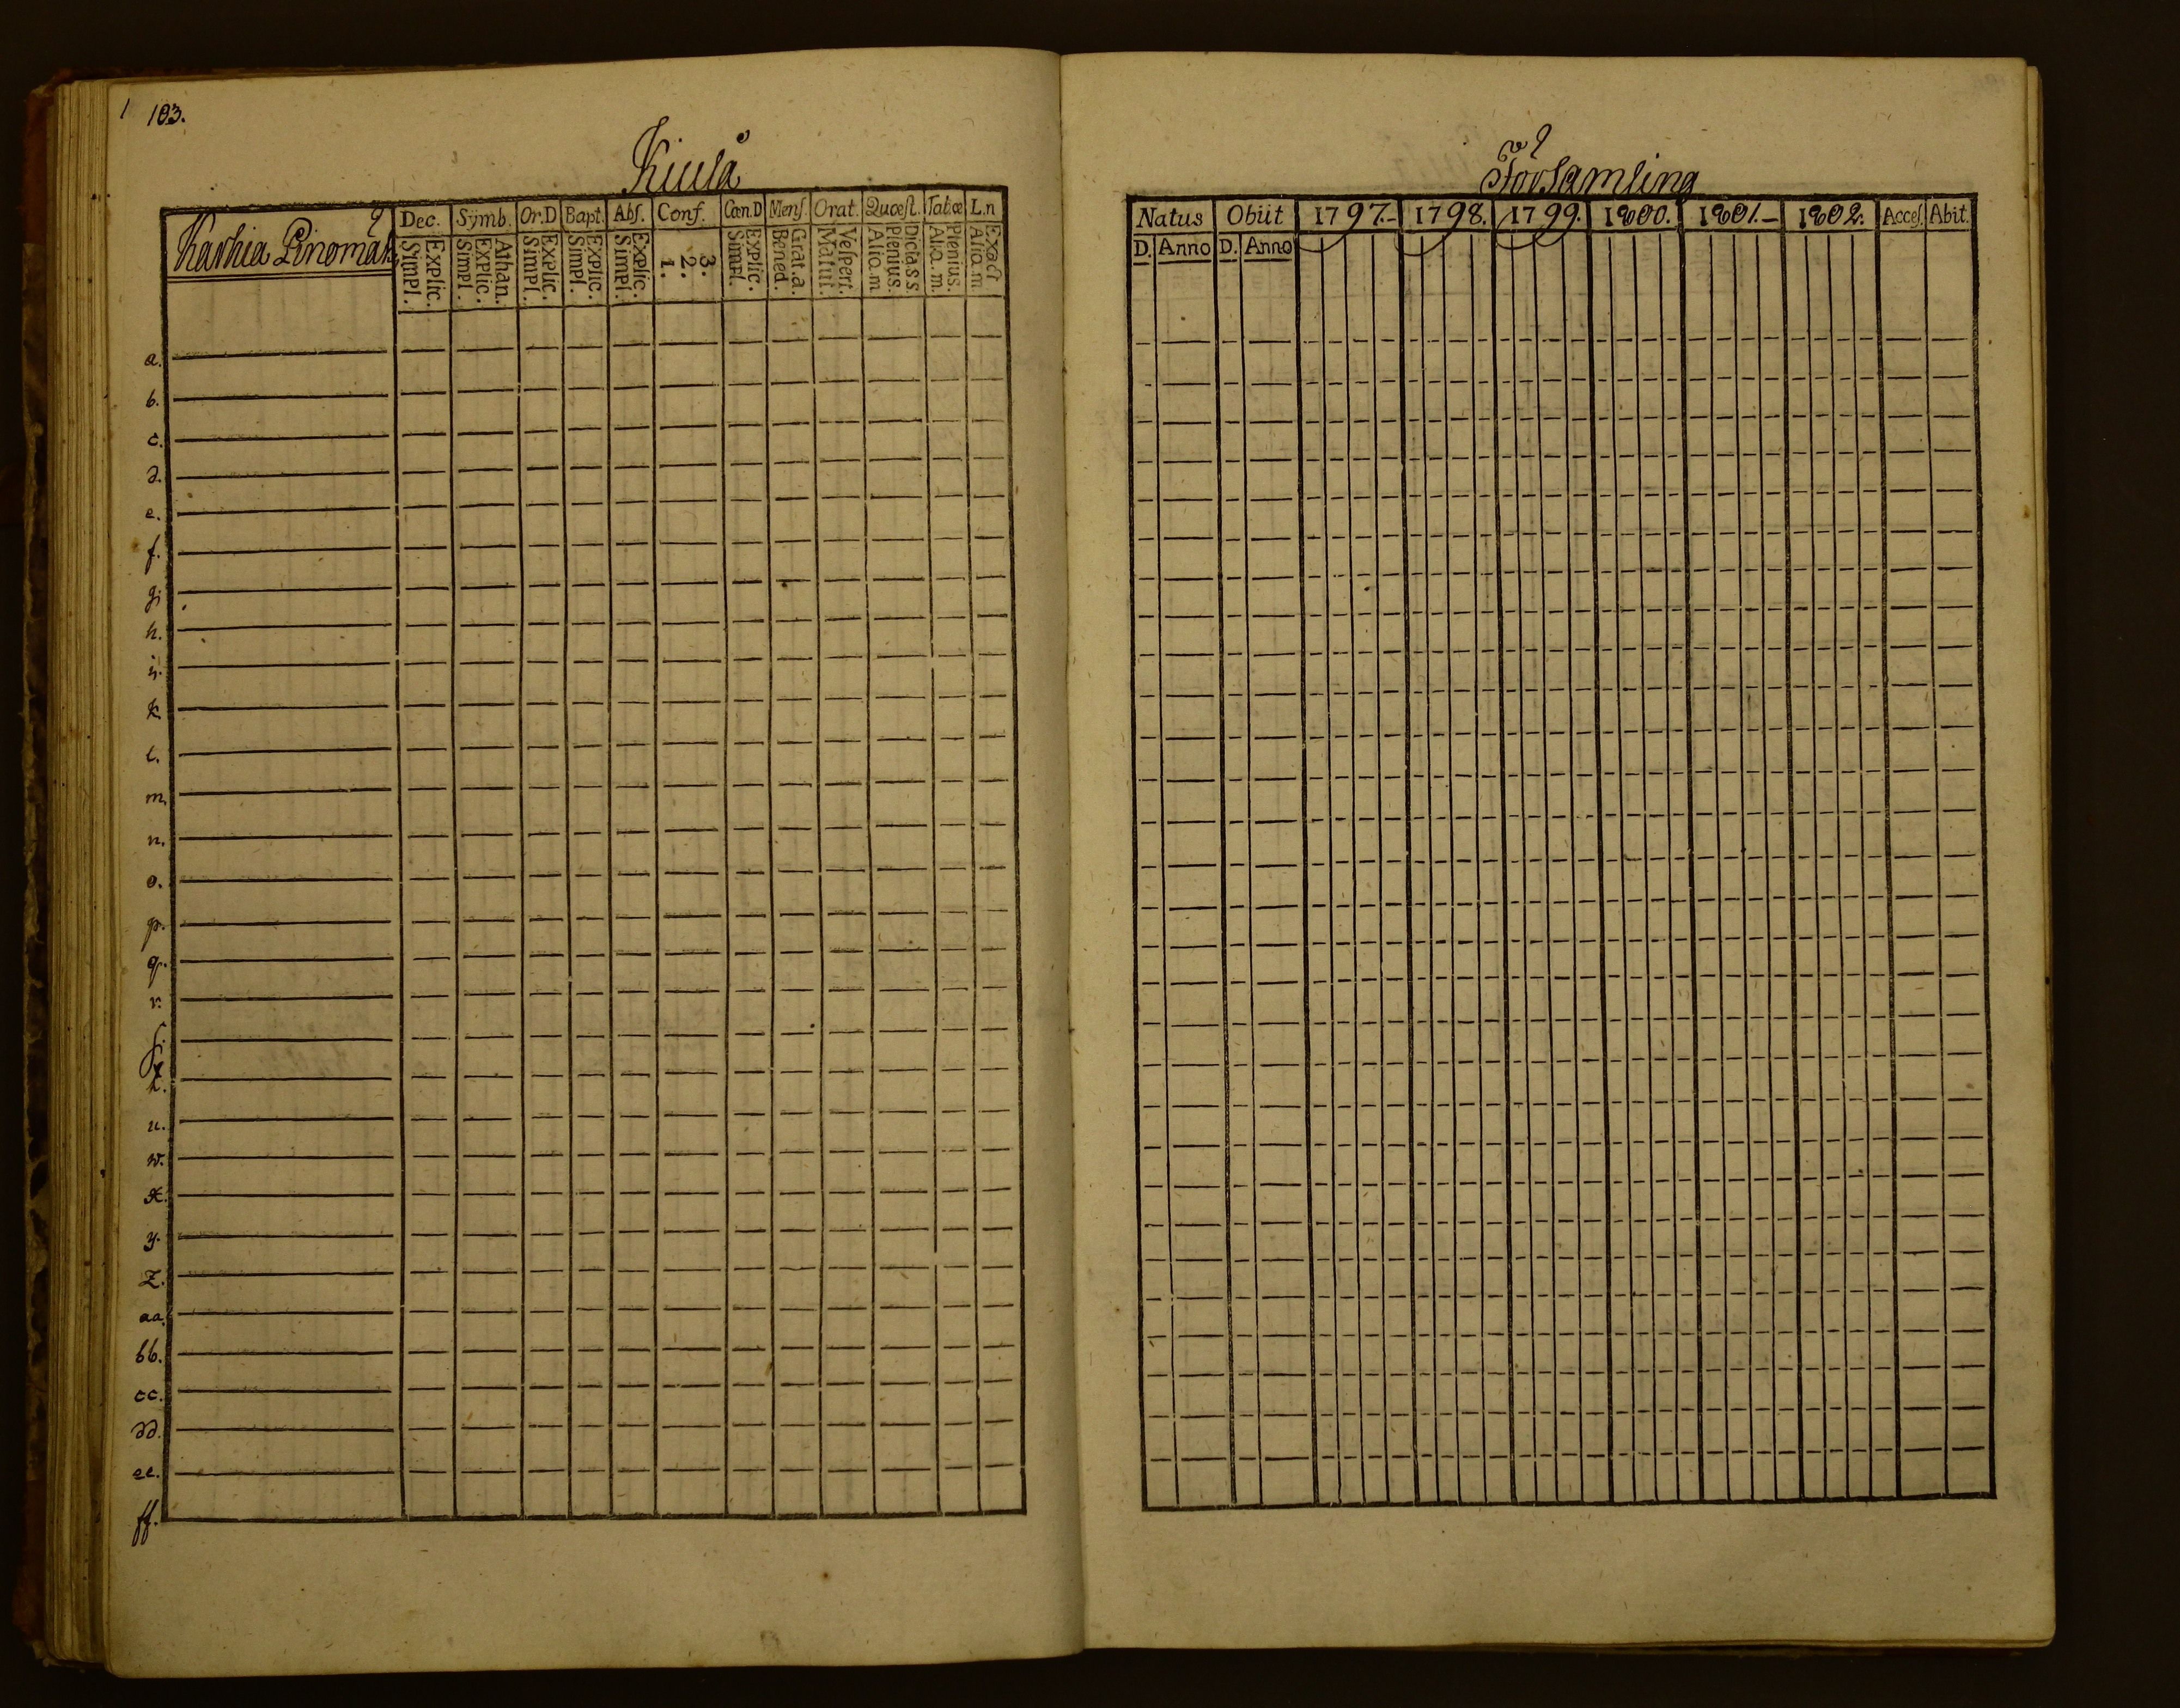 103.
Kiulå
Karhia Pinomäk
Dec. Sÿmb. Or.D Bapt. Abſ. Conf. Cœn.D Menſ. Orat. Quæſt. Tab.œ L.n
Explic. Simpl. Athan. Explic. Simpl. Explic. Simpl. Explic. Simpl. Explic. Simpl. 3. 2. 1. Explic. Simpl. Grat.a. Bened. Veſpert. Matut. Dicta s s. Plenius. Aliq.m Plenius. Aliq.m. Exact Aliq.m
a.
b.
c.
d.
e.
f.
g.
h.
i.
k.
l.
m.
n.
o.
p.
q.
r.
ſ.
t.
u.
w.
x.
y.
z.
aa.
bb.
cc.
dd.
ee.
ff.
Församling
Natus Obiit 1797.- 1798. 1799. 1800. 1801.- 1802. Acceſ. Abit.
D. Anno D. Anno